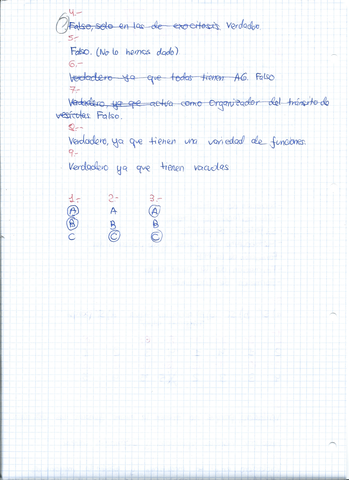 4.-
Falso, solo en las de exocitosis. Verdadero
5.-
Falso. (No lo hemos dado)
6.-
Verdadero ya que todas tienen AG. Falso
7.-
Verdadero, ya que activa como organizador del tránsito de
vesículas Falso.
8.-
Verdadero, ya que tienen una variedad de funciones.
9.-
Verdadero ya que tienen vacuolas
1.- 2.- 3.-
A A A
B B B
C C C